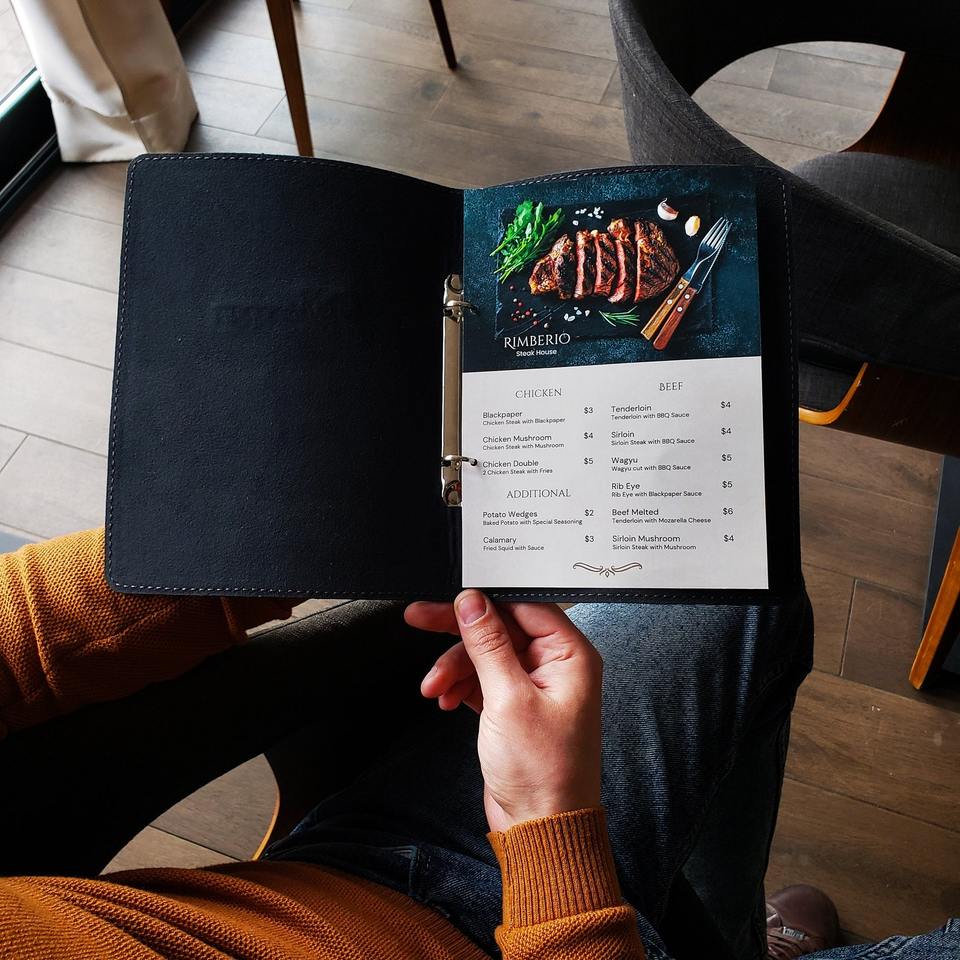 RIMBERIO
Steak House
CHICKEN
Blackpaper $3
Chicken Steak with Blackpaper
Chicken Mushroom $4
Chicken Steak with Mushroom
Chicken Double $5
2 Chicken Steak with Fries
ADDITIONAL
Potato Wedges $2
Baked Potato with Special Seasoning
Calamary $3
Fried Squid with Sauce
BEEF
Tenderloin $4
Tenderloin with BBQ Sauce
Sirloin $4
Sirloin Steak with BBQ Sauce
Wagyu $5
Wagyu cut with BBQ Sauce
Rib Eye $5
Rib Eye with Blackpaper Sauce
Beef Melted $6
Tenderloin with Mozarella Cheese
Sirloin Mushroom $4
Sirloin Steak with Mushroom